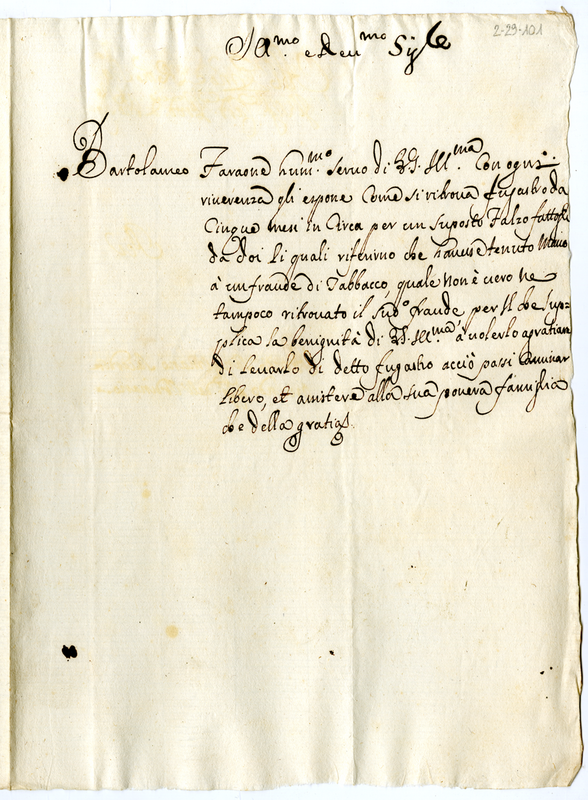 2-29-101
Ill.mo e Reu.mo Sig.re
Bartolameo Faraone hum.mo seruo di V.S. Ill.ma con ogni
riuerenza gli espone come si ritroua fugasco da
Cinque mesi in Circa per un suposto falzo fattogli
da doi li quali riferirino che hauesse tenuto mano
à un fraude di Tabbacco, quale non è uero ne
tampoco ritrouato il sud.o fraude, per il che sup=
plica la benignità di V.S. Ill.ma à uolerlo agratiare
di leuarlo di detto fugasco acciò possi caminar
libero, et asistere alla sua pouera famiglia
che della gratia